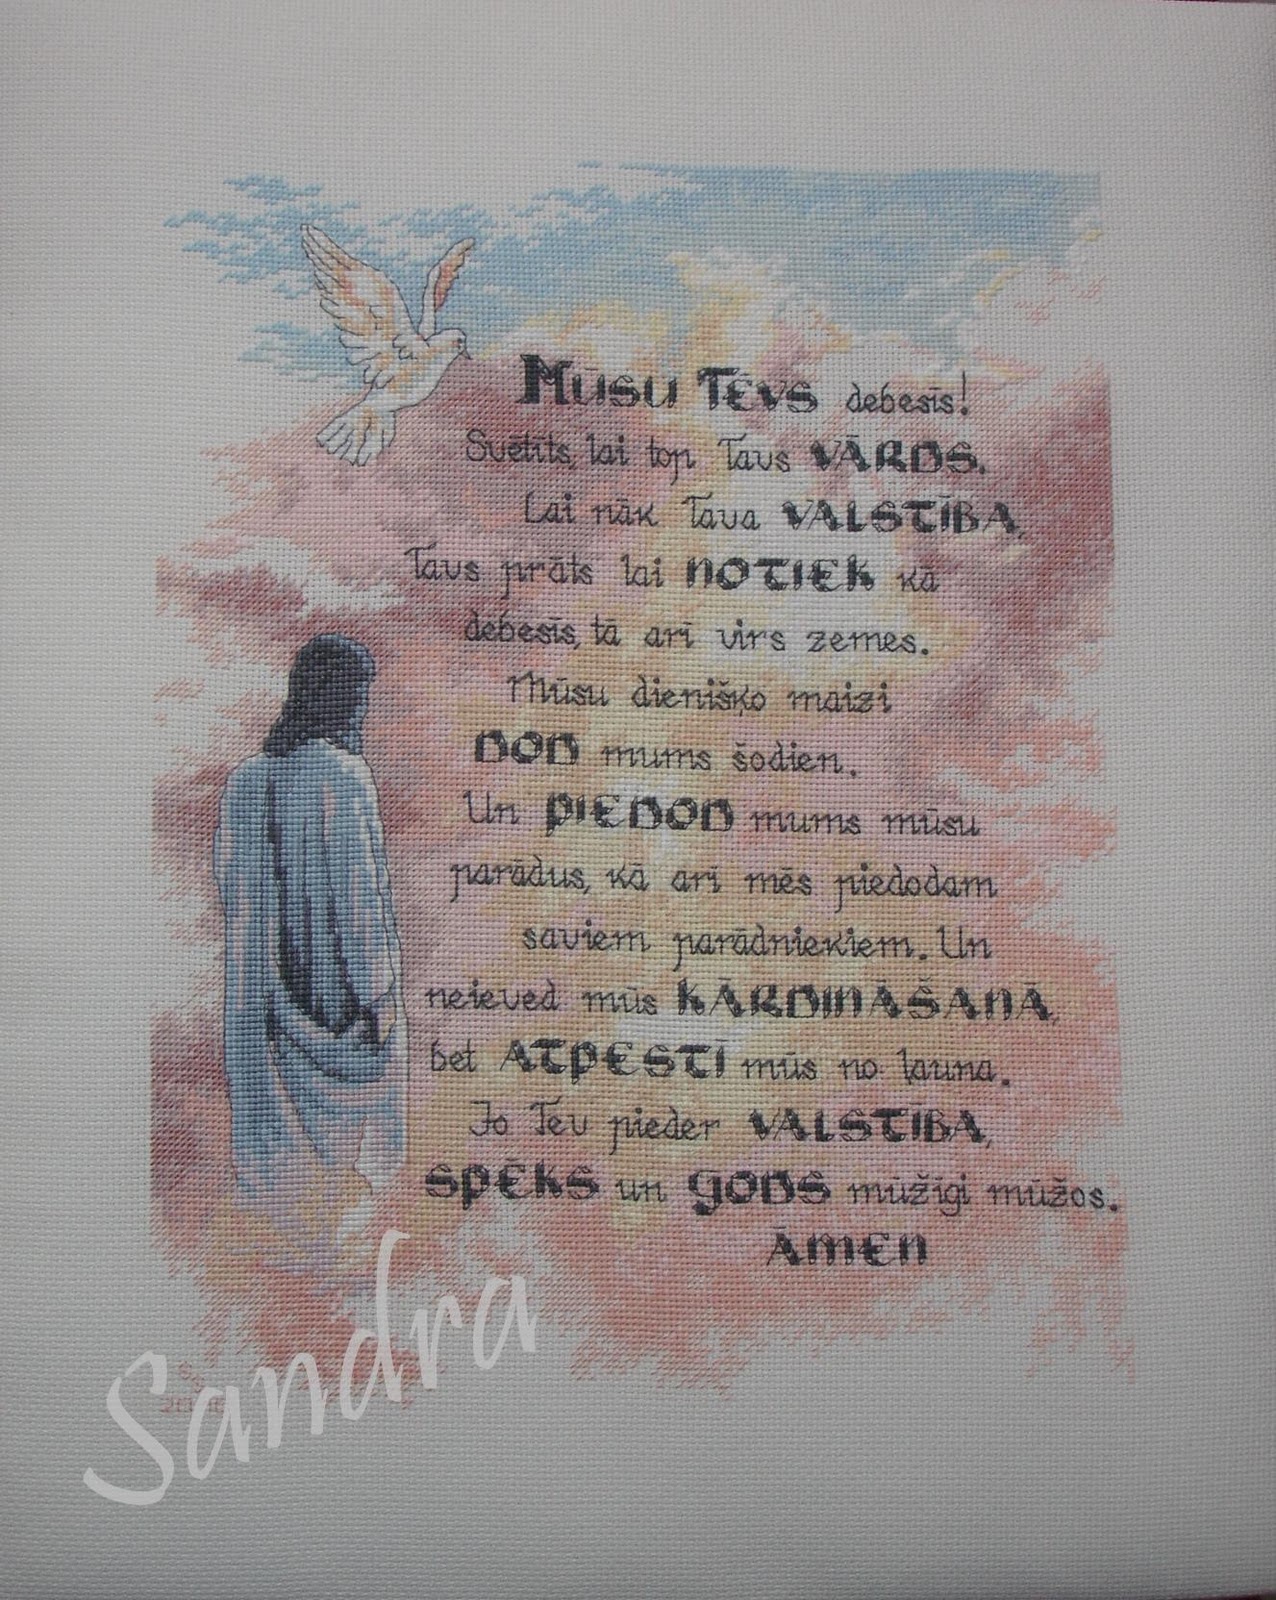 Mūsu Tēvs debesīs!
Svētīts, lai top Tavs VĀRDS.
Lai nāk Tava VALSTĪBA,
Tavs prāts lai NOTIEK kā
debesīs, tā arī virs zemes.
Mūsu dienišķo maizi
DOD mums šodien.
Un PIEDOD mums mūsu
parādus, kā arī mēs piedodam
saviem parādniekiem. Un
neieved mūs KĀRDINĀŠANĀ,
bet ATPESTĪ mūs no ļauna.
Jo Tev pieder VALSTĪBA,
SPĒKS un GODS mūžīgi mūžos.
ĀMEN
Sandra